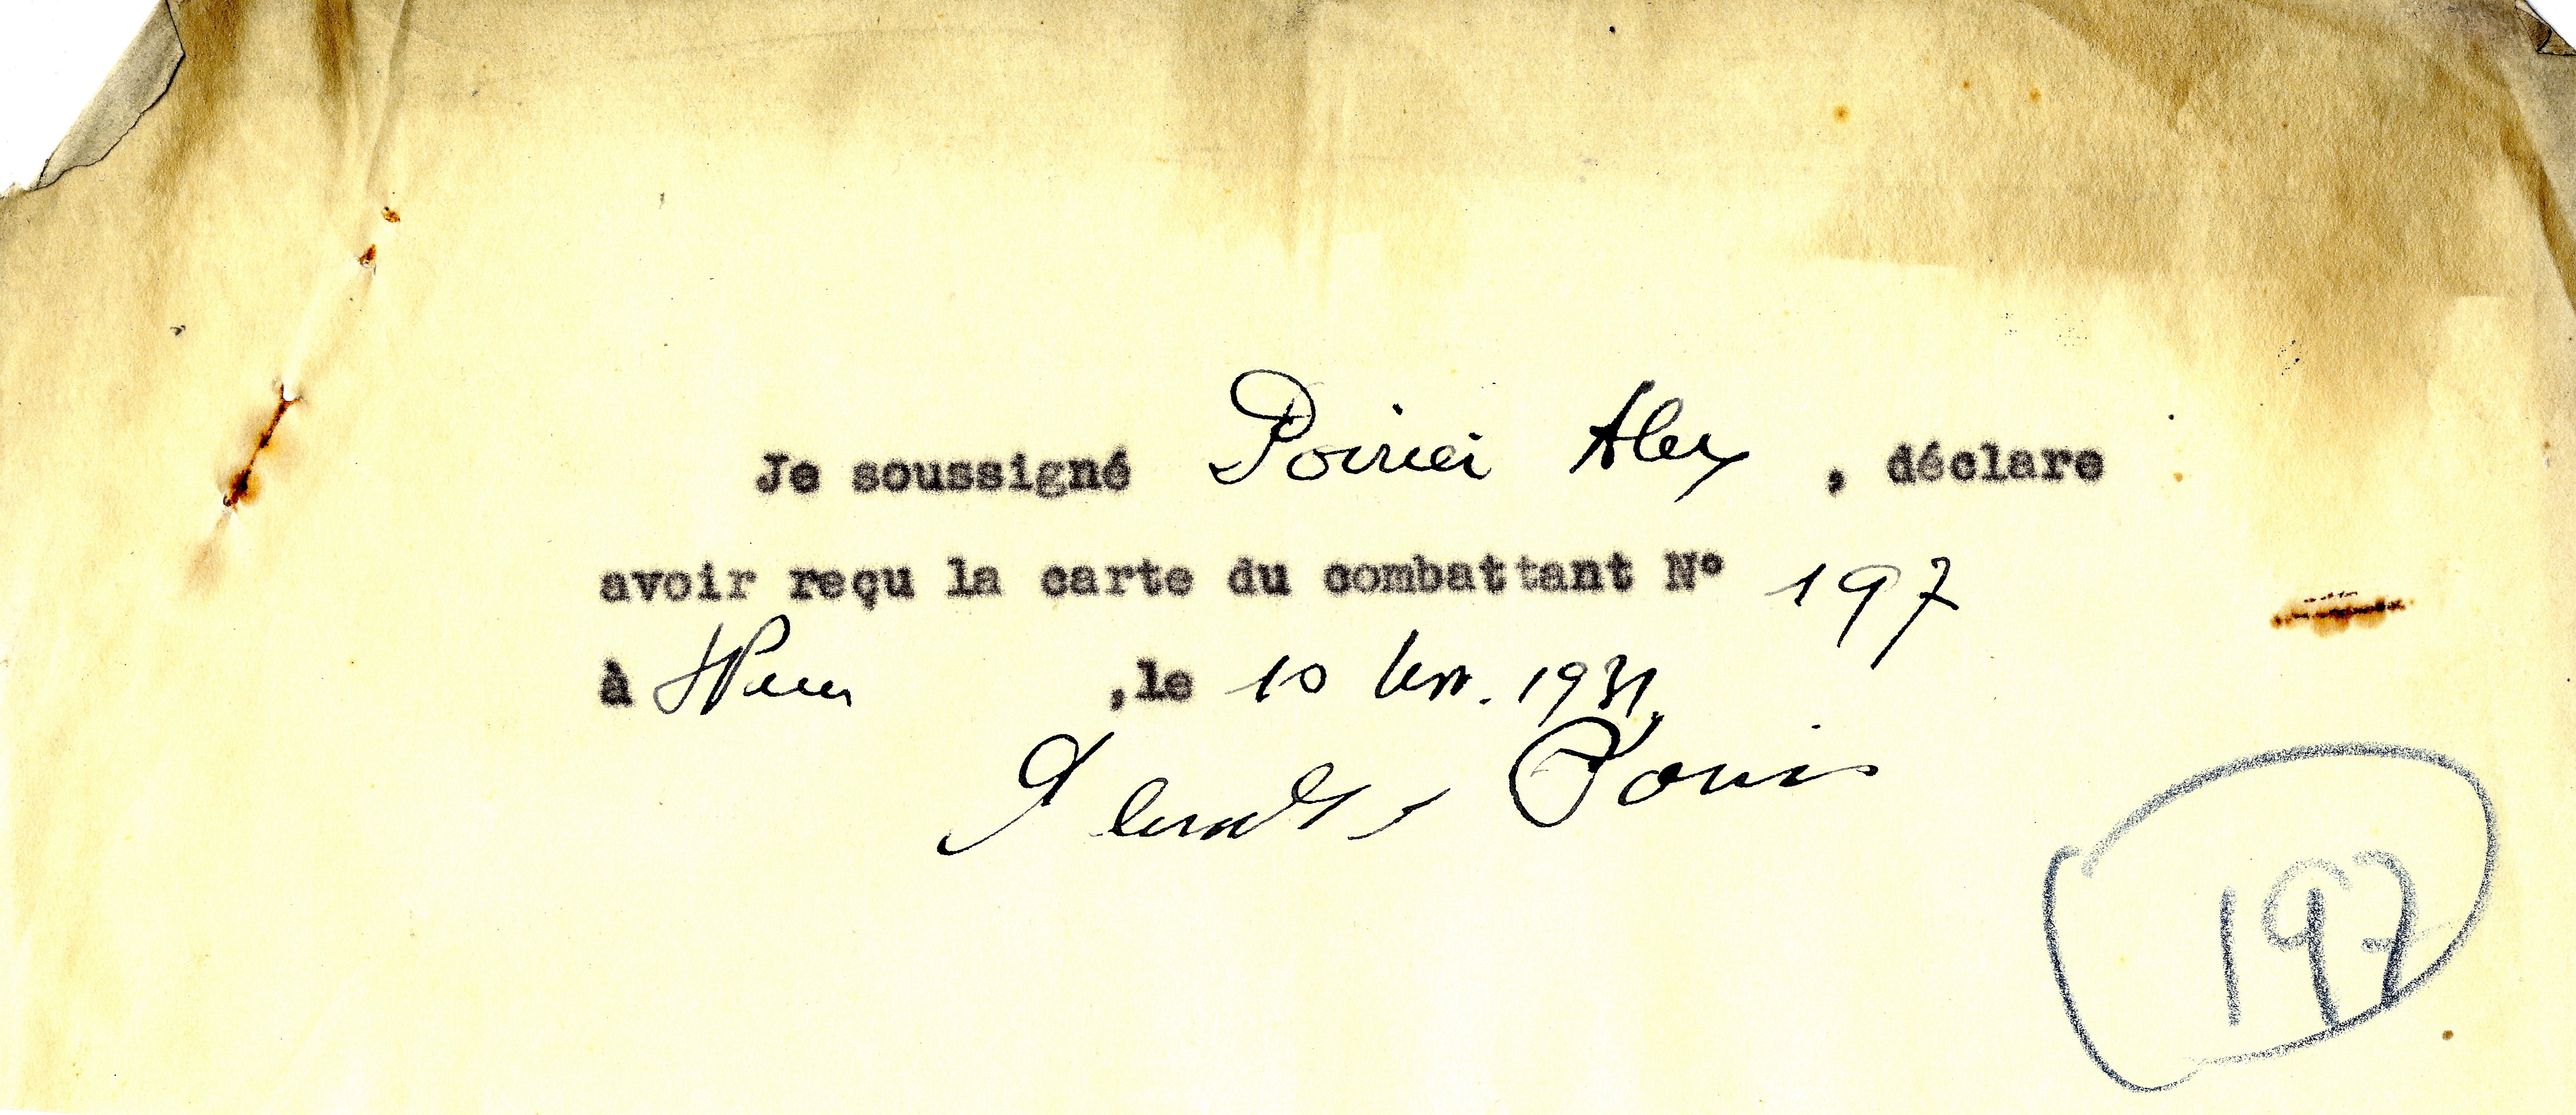 Je soussigné Poirier Alex, déclare
avoir reçu la carte du combattant N° 197
à St Pierre, le 10 fév. 1931.
197